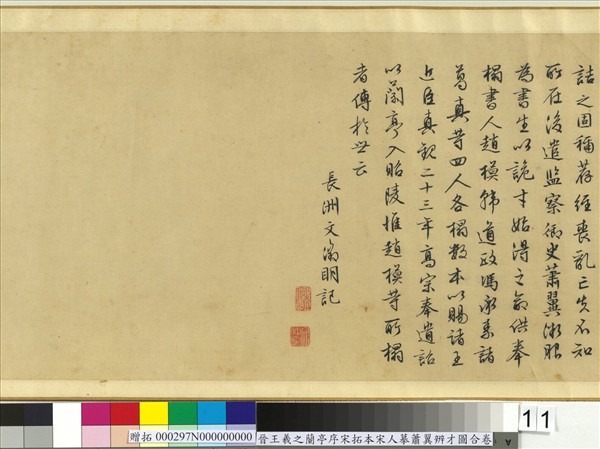 詰之固稱荐經喪亂亡失不知
所在後遣監察御史蕭翼微服
為書生以詭才始得之命供奉
榻書人趙模韓道政馮承素諸
葛真等四人各榻數本以賜諸王
近臣真觀二十三年高宗奉遺詔
以蘭亭入昭陵惟趙模等所榻
者傳於世云
長洲文徵明記
贈拓 000297N000000000 晉王羲之蘭亭序宋拓本宋人摹蕭翼辨才圖合卷
11
A